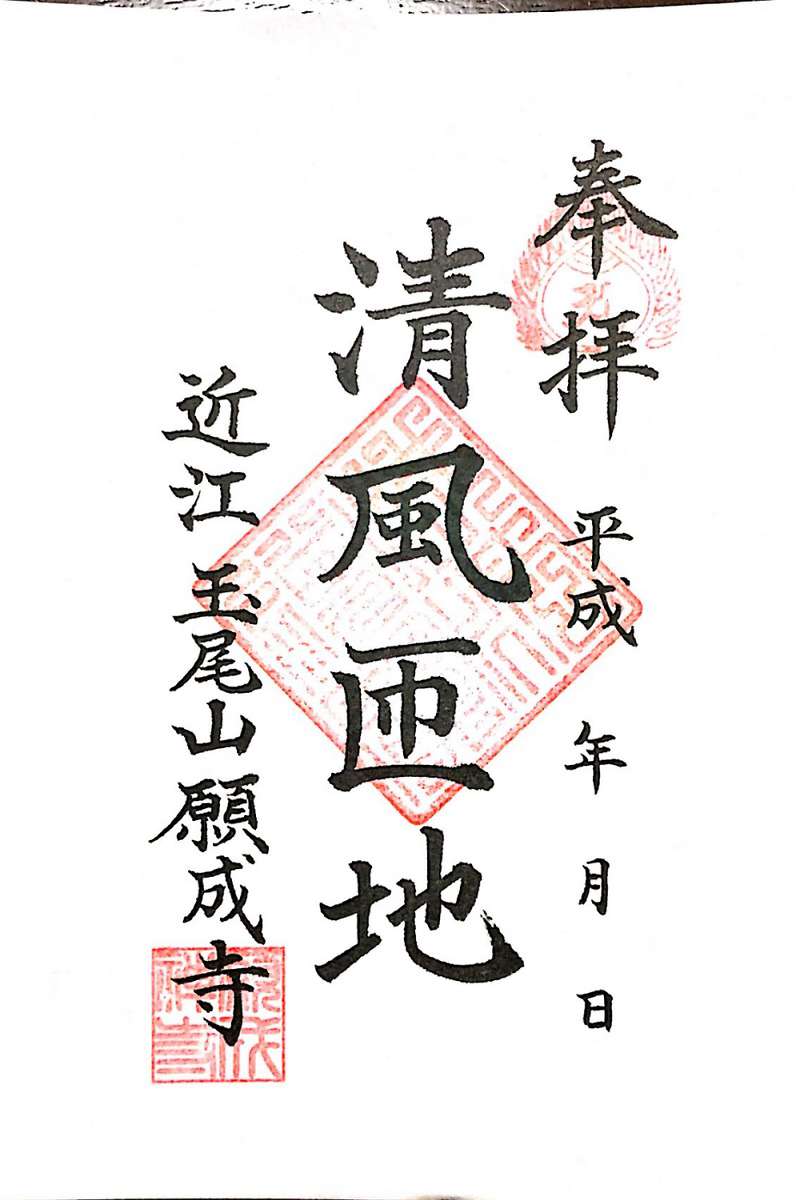 奉拝
平成 年 月 日
清風匝地
近江 玉尾山願成寺